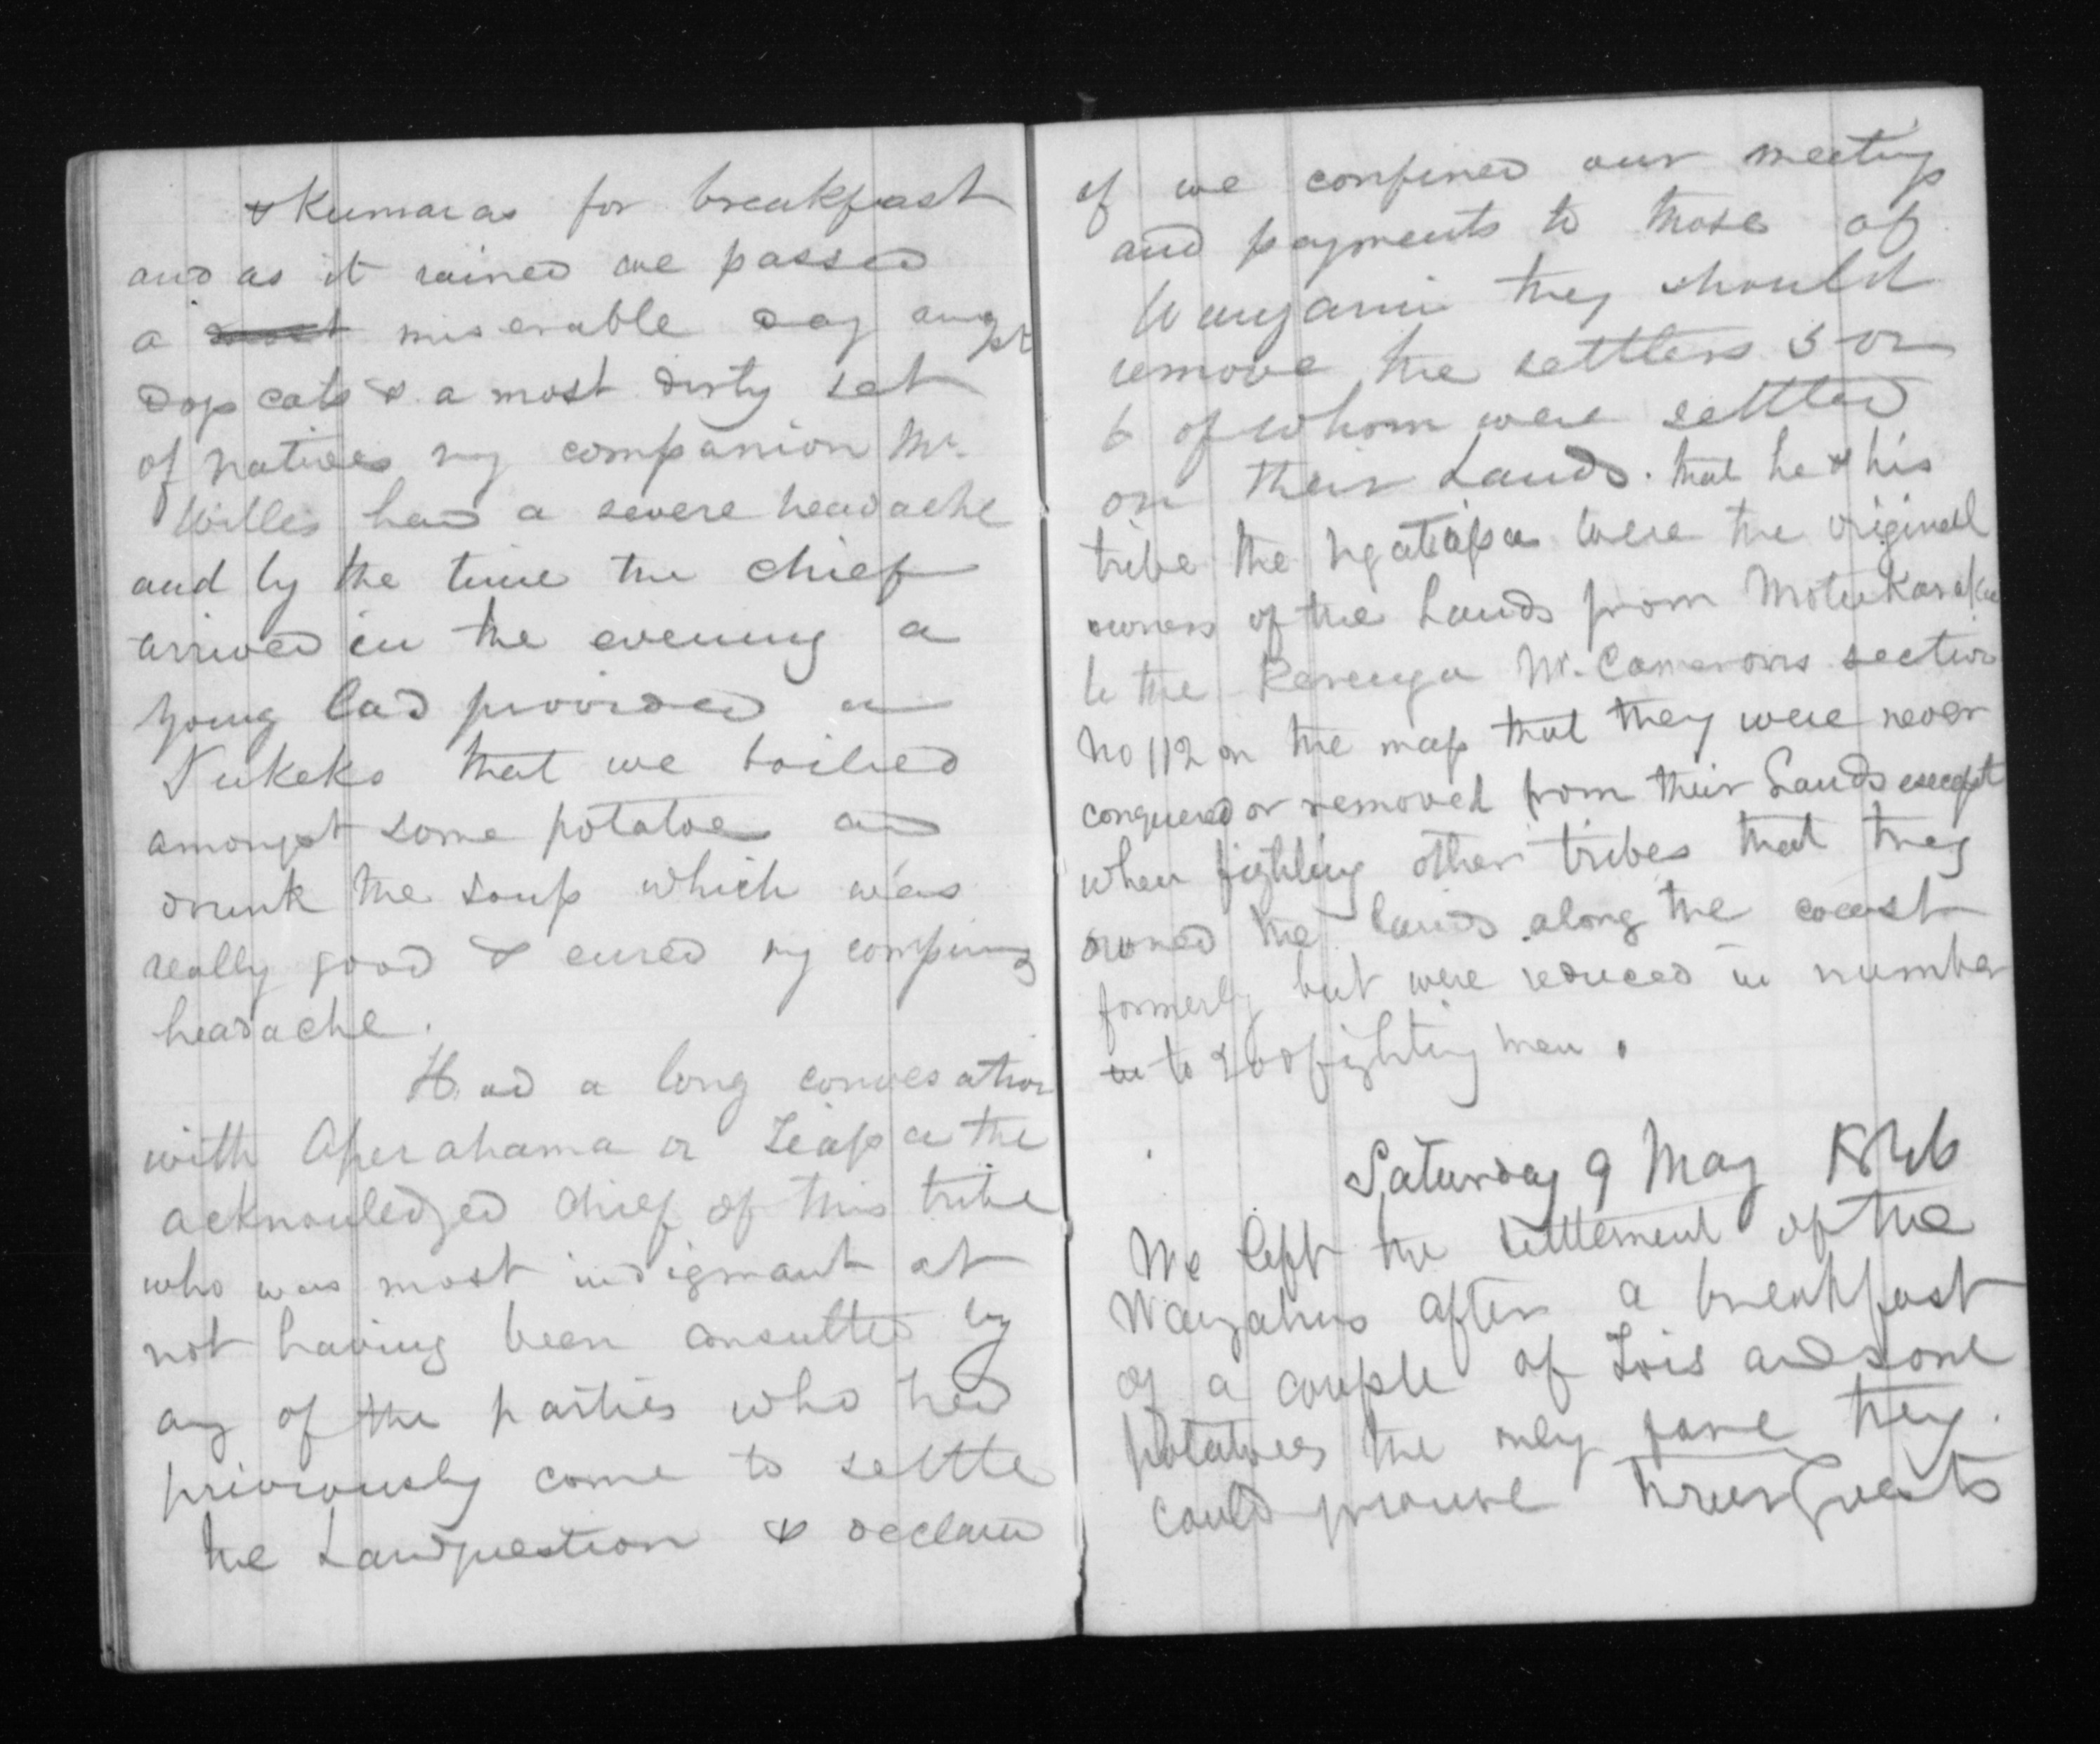 & Kumaras for breakfast
and as it rained we passed
a most miserable day amgst
dogs cats & a most dirty set
of natives my companion Mr.
Wills had a severe headache
and by the time the chief
arrived in the evening a
young lad provided a
Pukeko that we boiled
amongst some potatoes and
drunk the soup which was
really good & cured my companions
headache.
Had a long convesation
with Aperahama or Teapa the
acknouledged chief of this tribe
who was most indignant at
not having been consulted by
any of the parties who had
previously come to settle
the Land question & declared
if we confined our meetings
and payments to those of
Wanganui they should
remove the settlers 5 or
6 of whom were settled
on their Lands. that he & his
tribe the Ngatiapa were the original
owners of the Lands from Motukaraka
to the Mr. Camerons section
No 112 on the map that they were never
conquered or removed from their Lands except
when fighting other tribes that they
owned the lands along the coast
formerly but were reduced in number
in to 200 fighting men.
Saturday 9 May 1846
We left the settlement of the
after a breakfast
of a couple of and some
potatoes the only fare they
could procure their guests